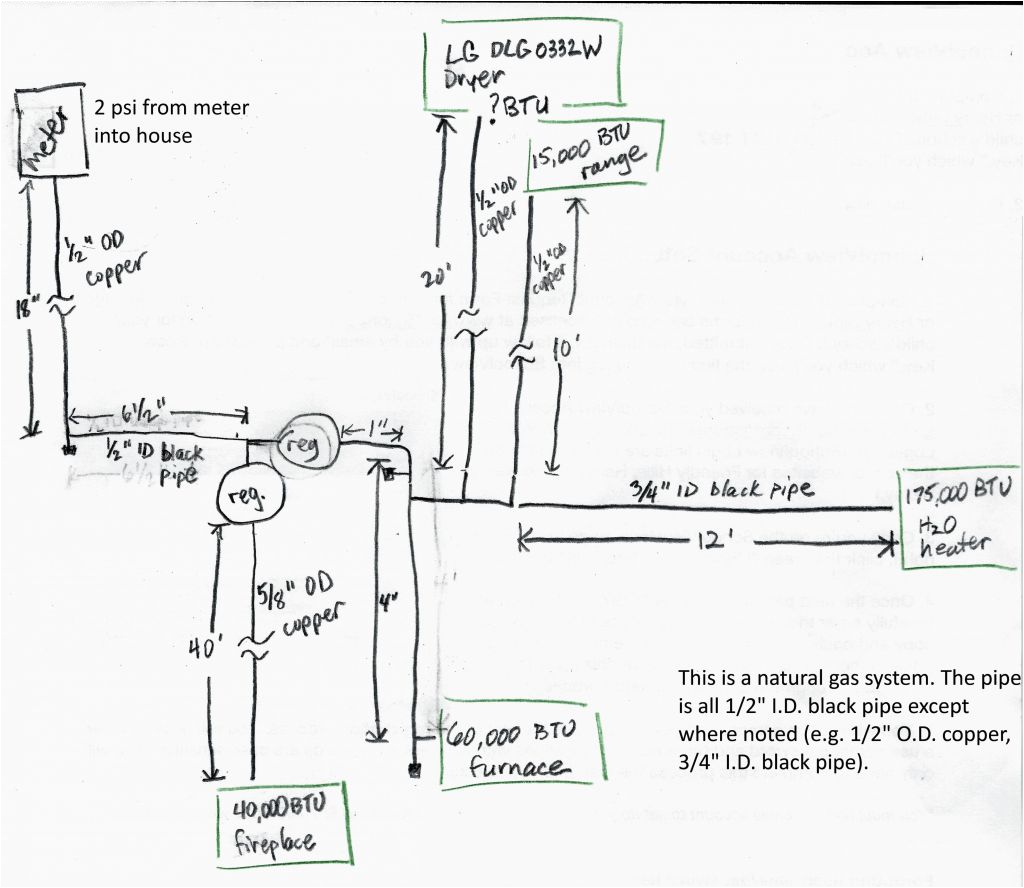 LG DLG0332W
Dryer
?BTU
meter
2 psi from meter
into house
15,000 BTU
range
1/2" OD
copper
18"
1/2" OD
copper
20'
1/2" OD
copper
10'
6 1/2"
1/2" ID black
pipe
reg
1"
reg.
3/4" ID black pipe
12'
175,000 BTU
H2O
heater
5/8" OD
copper
40'
4"
60,000 BTU
furnace
40,000BTU
fireplace
This is a natural gas system. The pipe
is all 1/2" I.D. black pipe except
where noted (e.g. 1/2" O.D. copper,
3/4" I.D. black pipe).